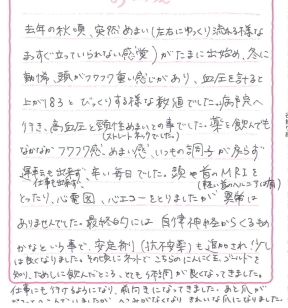 去年の秋頃、突然めまい(左右にゆっくり流れる様な
まっすぐ立っていられない感覚)がたまに出始め、冬に
動悸、頭がフワフワ重い感じがあり、血圧を計ると
上が183とびっくりする様な数値でした。病院へ
行き、高血圧と頸性めまいとの事でした。薬を飲んでも
(ストレートネックでした)
なかなかフワフワ感、めまい感、いつもの調子が戻らず
運転も出来ず、辛い毎日でした。頭や首のMRIを
仕事も出来ず、
(軽い首のヘルニアは有)
とったり、心電図、心エコーをとりましたが異常は
ありませんでした。最終的には自律神経からくるもの
かなという事で、安定剤(抗不安薬)も追加され少し
は良くなりました。その頃にネットでこちらのにんにく玉ゴールドを
知り、ためしに飲んだところ、とても調子が良くなってきました。
仕事にも行けるようになり、前向きになってきました。あと爪が